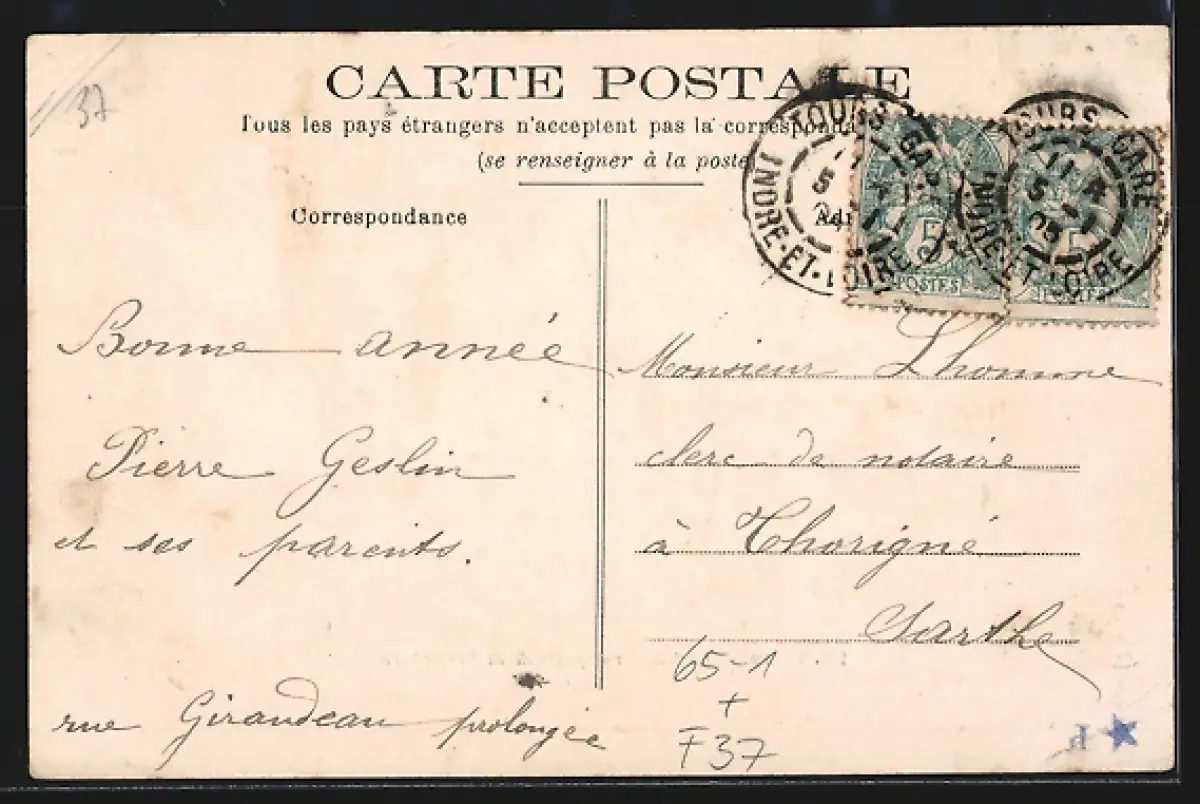 37
CARTE POSTALE
Tous les pays étrangers n'acceptent pas la correspond
(se renseigner à la poste
Correspondance
Ad
TOURS-GARE
5
INDRE-ET-LOIRE
5
POSTES
TOURS-GARE
11
5 -1
05
INDRE-ET-LOIRE
5
POSTES
Bonne année
Pierre Geslin
et ses parents.
rue Giraudeau prolongée
Monsieur Lhomme
clerc de notaire
à Thorigné
Sarthe
65-1
+
F37